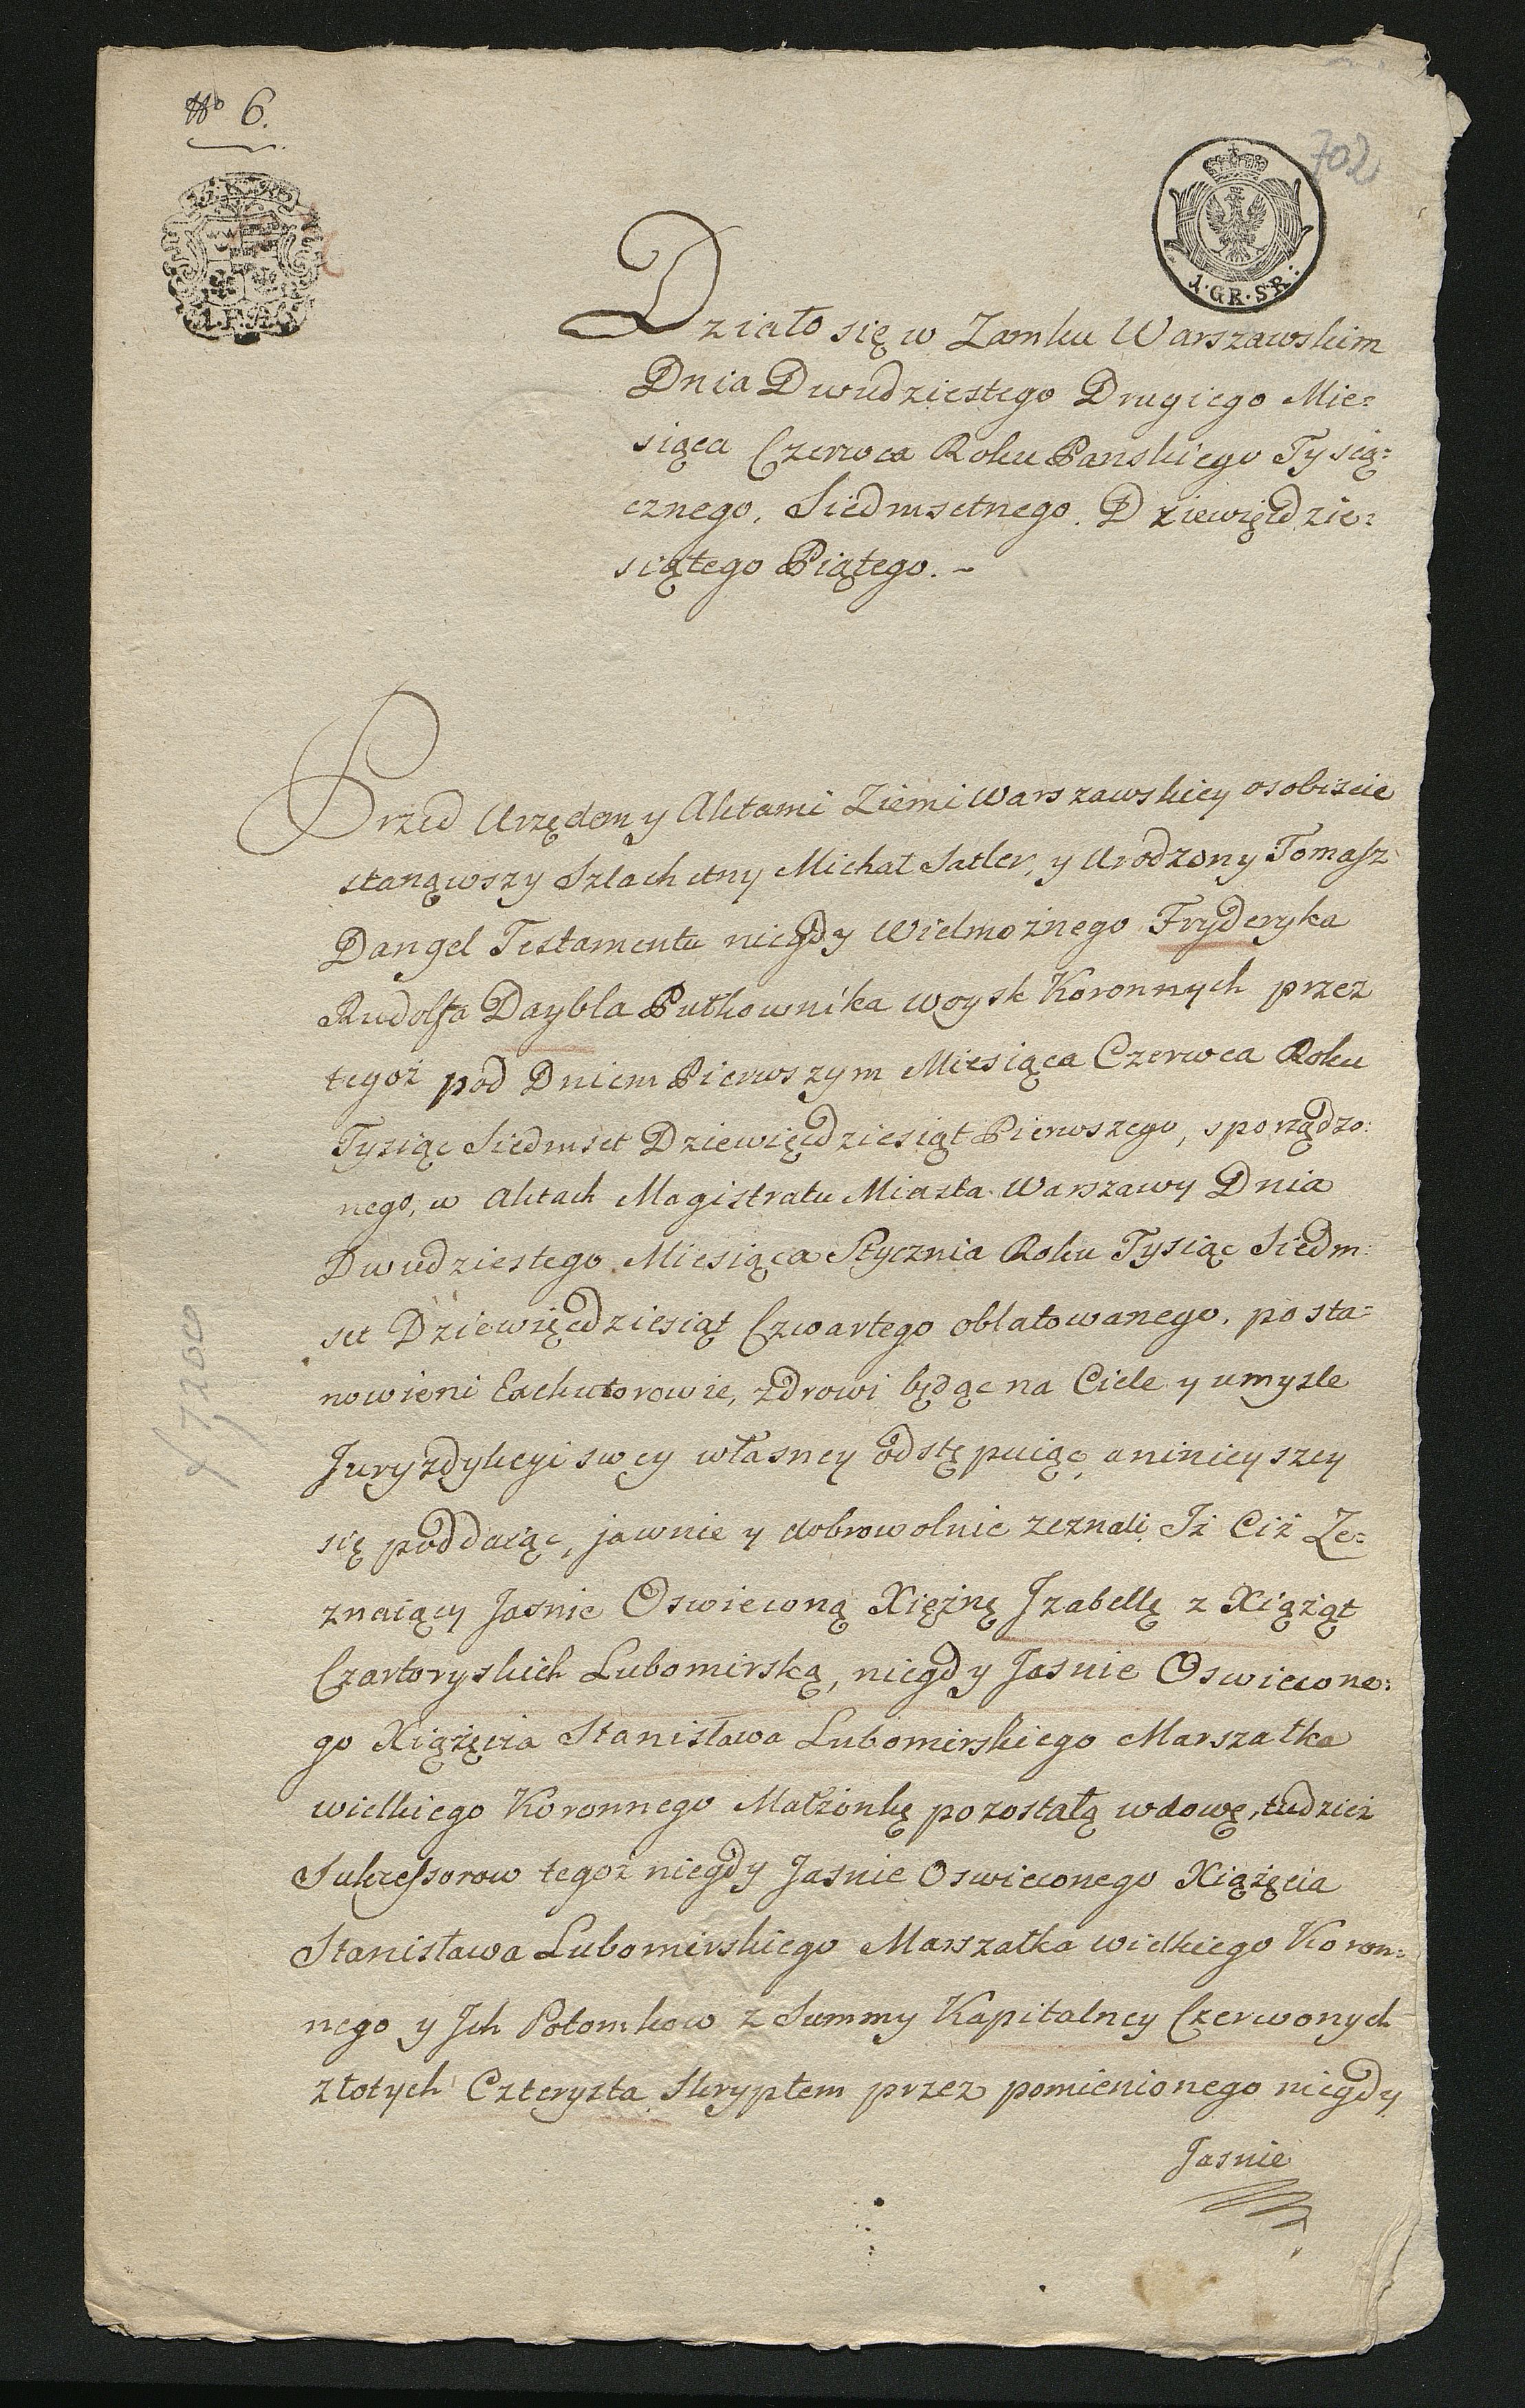 No 6.
702
1·GR·SR:
Działo się w Zamku Warszawskim
Dnia Dwudziestego Drugiego Mie=
siąca Czerwca Roku Panskiego Tysią=
cznego, Siedmsetnego, Dziewięćdzie=
siątego Piątego. -
Przed Urzędem y Aktami Ziemi Warszawskiey osobiscie
stanąwszy Szlachetny Michał Satler, y Urodzony Tomasz
Dangel Testamentu niegdy Wielmożnego Fryderyka
Rudolfa Daybla Pułkownika woysk Koronnych przez
tegoż pod Dniem Pierwszym Miesiąca Czerwca Roku
Tysiąc Siedmset Dziewięćdziesiąt Pierwszego, sporządzo=
nego, w Aktach Magistratu Miasta Warszawy Dnia
Dwudziestego Miesiąca Stycznia Roku Tysiąc Siedm=
set Dziewięćdziesiąt Czwartego oblatowanego, posta=
nowieni Exekutorowie, zdrowi będąc na Ciele y umysle
Juryzdykcyi swey własney odstępuiąc, a ninieyszey
się poddaiąc, jawnie y dobrowolnie zeznali Iż Ciż Ze=
znaiący Jasnie Oswieconą Xiężnę Izabellę z Xiążąt
Czartoryskich Lubomirską, niegdy Jasnie Oswiecone=
go Xiążęcia Stanisława Lubomirskiego Marszałka
wielkiego Koronnego Małżonkę pozostałą wdowę, tudzież
Sukcessorow tegoż niegdy Jasnie Oswieconego Xiążęcia
Stanisława Lubomirskiego Marszałka wielkiego Koron=
nego y Ich Potomkow z Summy Kapitalney Czerwonych
złotych Czterysta Skryptem przez pomienionego niegdy
Jasnie
7200